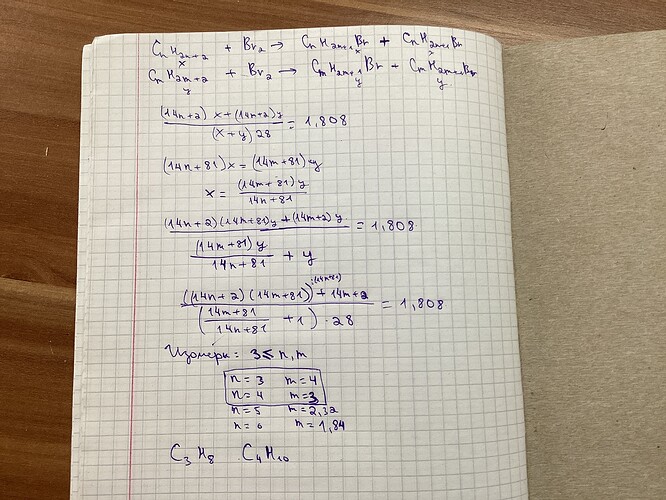 CnH2n+2 + Br2 → CnH2n+1Br + CnH2n+1Br
x x x
CmH2m+2 + Br2 → CmH2m+1Br + CmH2m+1Br
y y y
((14n+2)x+(14m+2)y)/((x+y)28) = 1,808
(14n+81)x = (14m+81)y
x = ((14m+81)y)/(14n+81)
((14n+2)(14m+81)y+(14m+2)y)/(((14m+81)y)/(14n+81) + y) = 1,808
(((14n+2)(14m+81)):(14n+81) + 14m+2)/(((14m+81)/(14n+81) + 1)·28) = 1,808
Изомеры: 3 ≤ n,m
n=3 m=4
n=4 m=3
n=5 m=2,32
n=6 m=1,84
C3H8 C4H10